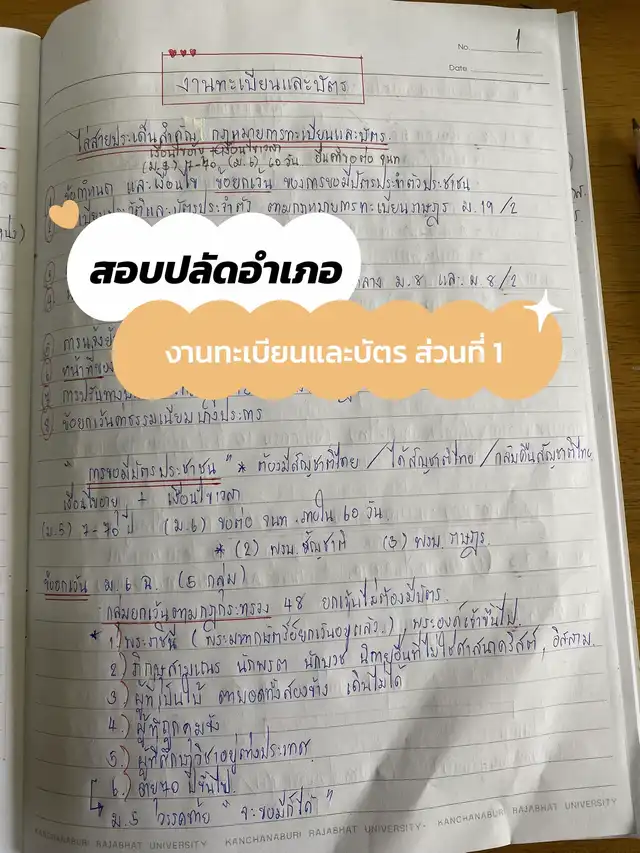 No. 1
Date
งานทะเบียนและบัตร
ไล่สายประเด็นสำคัญ กฎหมายการทะเบียนและบัตร
เงื่อนไขอายุ เงื่อนไขเวลา
(ม.5) 7-70 (ม.6) 60 วัน ยื่นคำขอต่อ จนท.
ข้อกำหนด และเงื่อนไข ข้อยกเว้น ของการขอมีบัตรประจำตัวประชาชน
ทะเบียนประวัติและบัตรประจำตัว ตามกฎหมายการทะเบียนราษฎร ม.19/2
สอบปลัดอำเภอ
กลาง ม.8 และ ม.8/2
งานทะเบียนและบัตร ส่วนที่ 1
การแจ้งย้า
หน้าที่ของ
การปรับทาง
ข้อยกเว้นค่าธรรมเนียม บางประการ
"การขอมีบัตรประชาชน" * ต้องมีสัญชาติไทย / ได้สัญชาติไทย / กลับคืนสัญชาติไทย
เงื่อนไขอายุ + เงื่อนไขเวลา
(ม.5) 7-70 ปี (ม.6) ขอต่อ จนท. ภายใน 60 วัน
* (2) พรบ. สัญชาติ (3) พรบ. ราษฎร
ข้อยกเว้น ม.6 ฉ. (5 กลุ่ม)
กลุ่มยกเว้นตามกฎกระทรวง 48 ยกเว้นไม่ต้องมีบัตร
* 1) พระราชินี (พระมหากษัตริย์ยกเว้นอยู่แล้ว..), พระองค์เจ้าขึ้นไป
2) ภิกษุสามเณร นักพรต นักบวช นิกายอื่นที่ไม่ใช่ศาสนาคริสต์, อิสลาม
3) ผู้ที่เป็นใบ้ ตาบอดทั้งสองข้าง เดินไม่ได้
4.) ผู้ที่ถูกคุมขัง
5.) ผู้ที่ศึกษาวิชาอยู่ต่างประเทศ
6.) อายุ 70 ปีขึ้นไป
ม.5 วรรคท้าย "จะขอมีก็ได้"
KANCHANABURI RAJABHAT UNIVERSITY· KANCHANABURI RAJABHAT UNIVERSITY· KANCHANABURI RAJABHAT UNIVERSITY